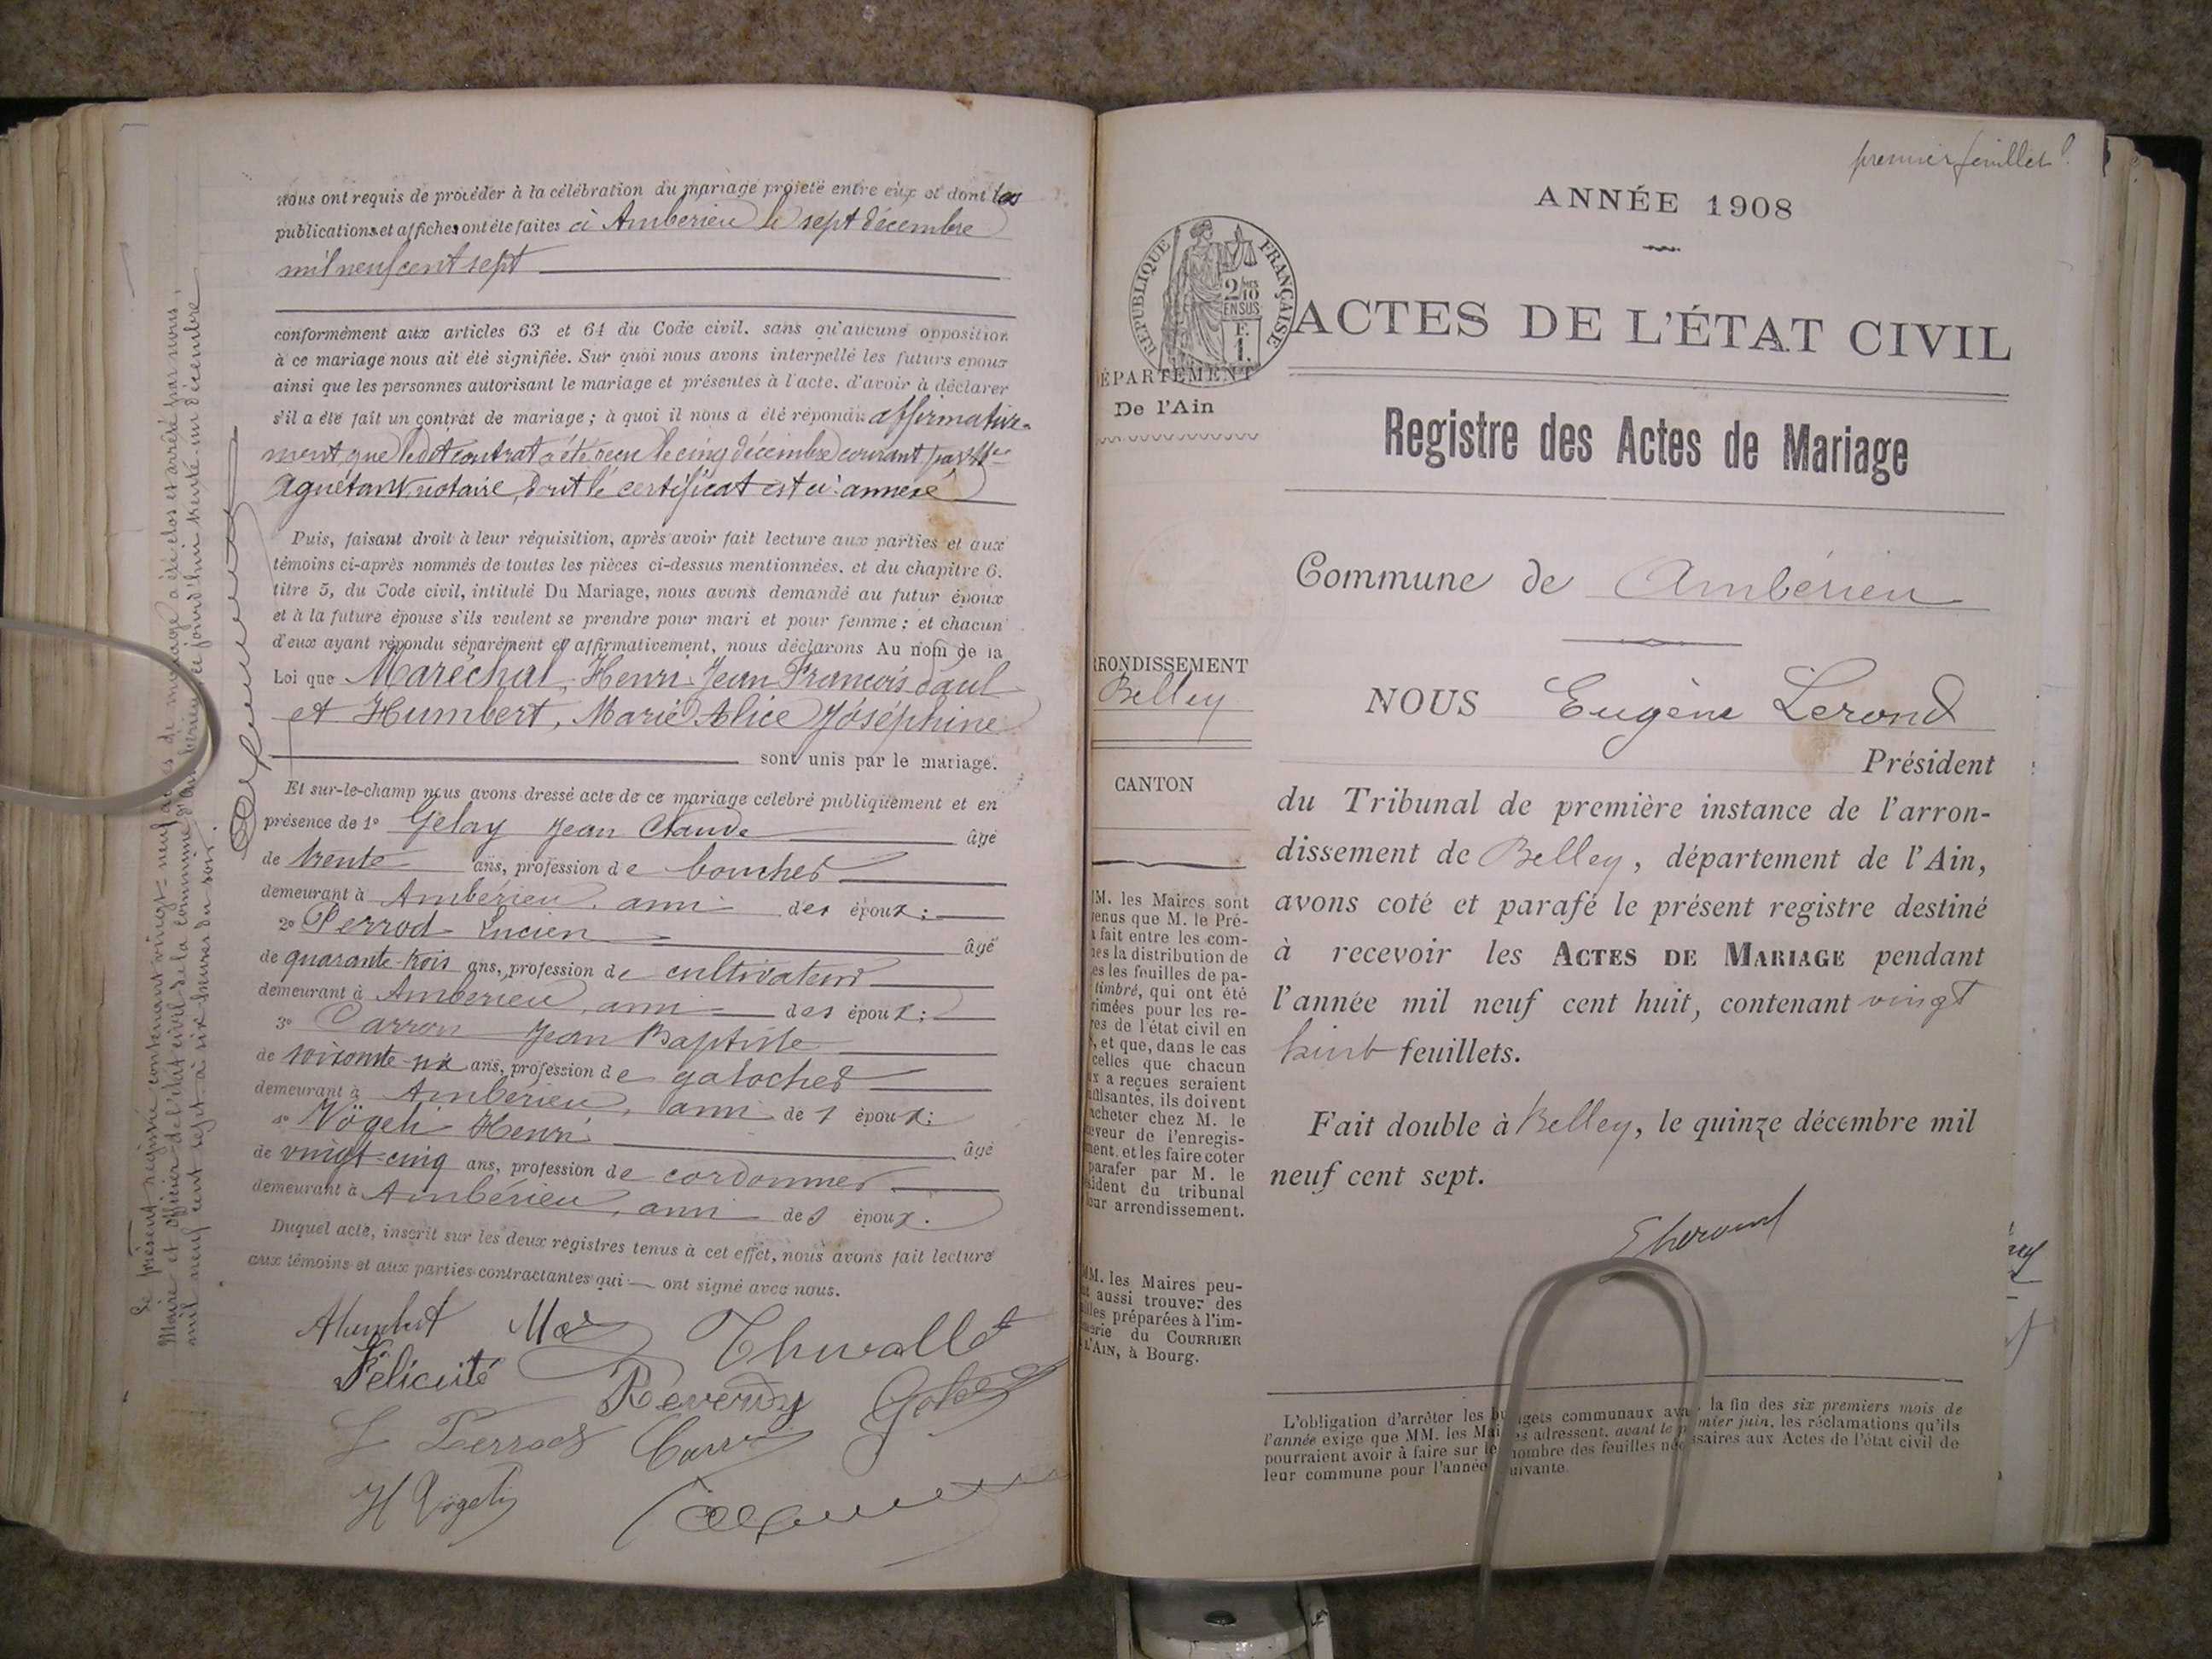 nous ont requis de procéder à la célébration du mariage projeté entre eux et dont les
publications et affiches ont été faites à Ambérieu le sept décembre
mil neuf cent sept
conformément aux articles 63 et 64 du Code civil, sans qu'aucune opposition
à ce mariage nous ait été signifiée. Sur quoi nous avons interpellé les futurs époux
ainsi que les personnes autorisant le mariage et présentes à l'acte, d'avoir à déclarer
s'il a été fait un contrat de mariage ; à quoi il nous a été répondu affirmative-
ment, que ledit contrat a été reçu le cinq décembre courant par Me
Aguétant, notaire, dont le certificat est ci-annexé
Puis, faisant droit à leur réquisition, après avoir fait lecture aux parties et aux
témoins ci-après nommés de toutes les pièces ci-dessus mentionnées, et du chapitre 6,
titre 5, du Code civil, intitulé Du Mariage, nous avons demandé au futur époux
et à la future épouse s'ils veulent se prendre pour mari et pour femme ; et chacun
d'eux ayant répondu séparément et affirmativement, nous déclarons Au nom de la
Loi que Maréchal, Henri Jean François Paul
et Humbert, Marie Alice Joséphine
sont unis par le mariage.
Et sur-le-champ nous avons dressé acte de ce mariage célébré publiquement et en
présence de 1° Gelay Jean Claude âgé
de trente ans, profession de boucher
demeurant à Ambérieu, ami des époux ;
2° Perrod Lucien âgé
de quarante-trois ans, profession de cultivateur
demeurant à Ambérieu, ami des époux ;
3° Carron Jean Baptiste
de soixante-six ans, profession de galocher
demeurant à Ambérieu, ami des époux ;
4° Vögeli Henri âgé
de vingt-cinq ans, profession de cordonnier
demeurant à Ambérieu, ami des époux.
Duquel acte, inscrit sur les deux registres tenus à cet effet, nous avons fait lecture
aux témoins et aux parties contractantes qui ont signé avec nous.
AHumbert Mar Thevallet
Félicité Reverdy
L Perrod Carron
H Vögeli
Le présent registre contenant vingt-neuf actes de mariage a été clos et arrêté par nous,
Maire et officier de l'état civil de la commune d'Ambérieu ce jourd'hui trente-un décembre
mil neuf cent sept à six heures du soir.
premier feuillet
ANNÉE 1908
RÉPUBLIQUE FRANÇAISE
2/10 EN SUS
F. 1.
ACTES DE L'ÉTAT CIVIL
ÉPARTEMENT
De l'Ain
Registre des Actes de Mariage
Commune de Ambérieu
RRONDISSEMENT
Belley
NOUS Eugène Lerond
Président
CANTON
du Tribunal de première instance de l'arron-
dissement de Belley, département de l'Ain,
avons coté et parafé le présent registre destiné
à recevoir les ACTES DE MARIAGE pendant
l'année mil neuf cent huit, contenant vingt
huit feuillets.
Fait double à Belley, le quinze décembre mil
neuf cent sept.
ELerond
MM. les Maires sont
enus que M. le Pré-
a fait entre les com-
nes la distribution de
es les feuilles de pa-
timbré, qui ont été
rimées pour les re-
res de l'état civil en
, et que, dans le cas
celles que chacun
x a reçues seraient
uffisantes, ils doivent
acheter chez M. le
eveur de l'enregis-
ment, et les faire coter
parafer par M. le
sident du tribunal
eur arrondissement.
MM. les Maires peu-
t aussi trouver des
illes préparées à l'im-
merie du COURRIER
L'AIN, à Bourg.
L'obligation d'arrêter les budgets communaux avant la fin des six premiers mois de
l'année exige que MM. les Maires adressent, avant le premier juin, les réclamations qu'ils
pourraient avoir à faire sur le nombre des feuilles nécessaires aux Actes de l'état civil de
leur commune pour l'année suivante.